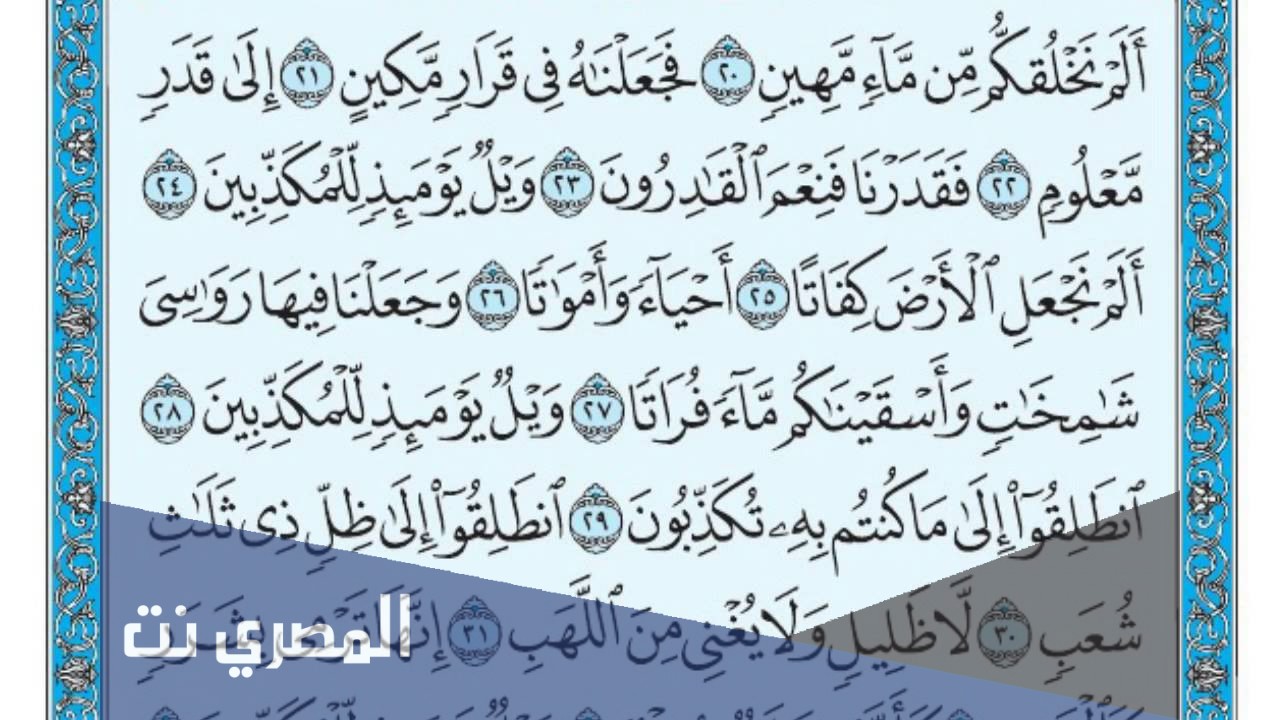 أَلَمْ نَخْلُقكُّم مِّن مَّآءٍ مَّهِينٍ ٢٠ فَجَعَلْنَٰهُ فِى قَرَارٍ مَّكِينٍ ٢١ إِلَىٰ قَدَرٍ
مَّعْلُومٍ ٢٢ فَقَدَرْنَا فَنِعْمَ ٱلْقَٰدِرُونَ ٢٣ وَيْلٌ يَوْمَئِذٍ لِّلْمُكَذِّبِينَ ٢٤
أَلَمْ نَجْعَلِ ٱلْأَرْضَ كِفَاتًا ٢٥ أَحْيَآءً وَأَمْوَٰتًا ٢٦ وَجَعَلْنَا فِيهَا رَوَٰسِىَ
شَٰمِخَٰتٍ وَأَسْقَيْنَٰكُم مَّآءً فُرَاتًا ٢٧ وَيْلٌ يَوْمَئِذٍ لِّلْمُكَذِّبِينَ ٢٨
ٱنطَلِقُوٓا۟ إِلَىٰ مَا كُنتُم بِهِۦ تُكَذِّبُونَ ٢٩ ٱنطَلِقُوٓا۟ إِلَىٰ ظِلٍّ ذِى ثَلَٰثِ
شُعَبٍ ٣٠ لَّا ظَلِيلٍ وَلَا يُغْنِى مِنَ ٱللَّهَبِ ٣١ إِنَّهَا تَرْمِى بِشَرَرٍ
المصري نت